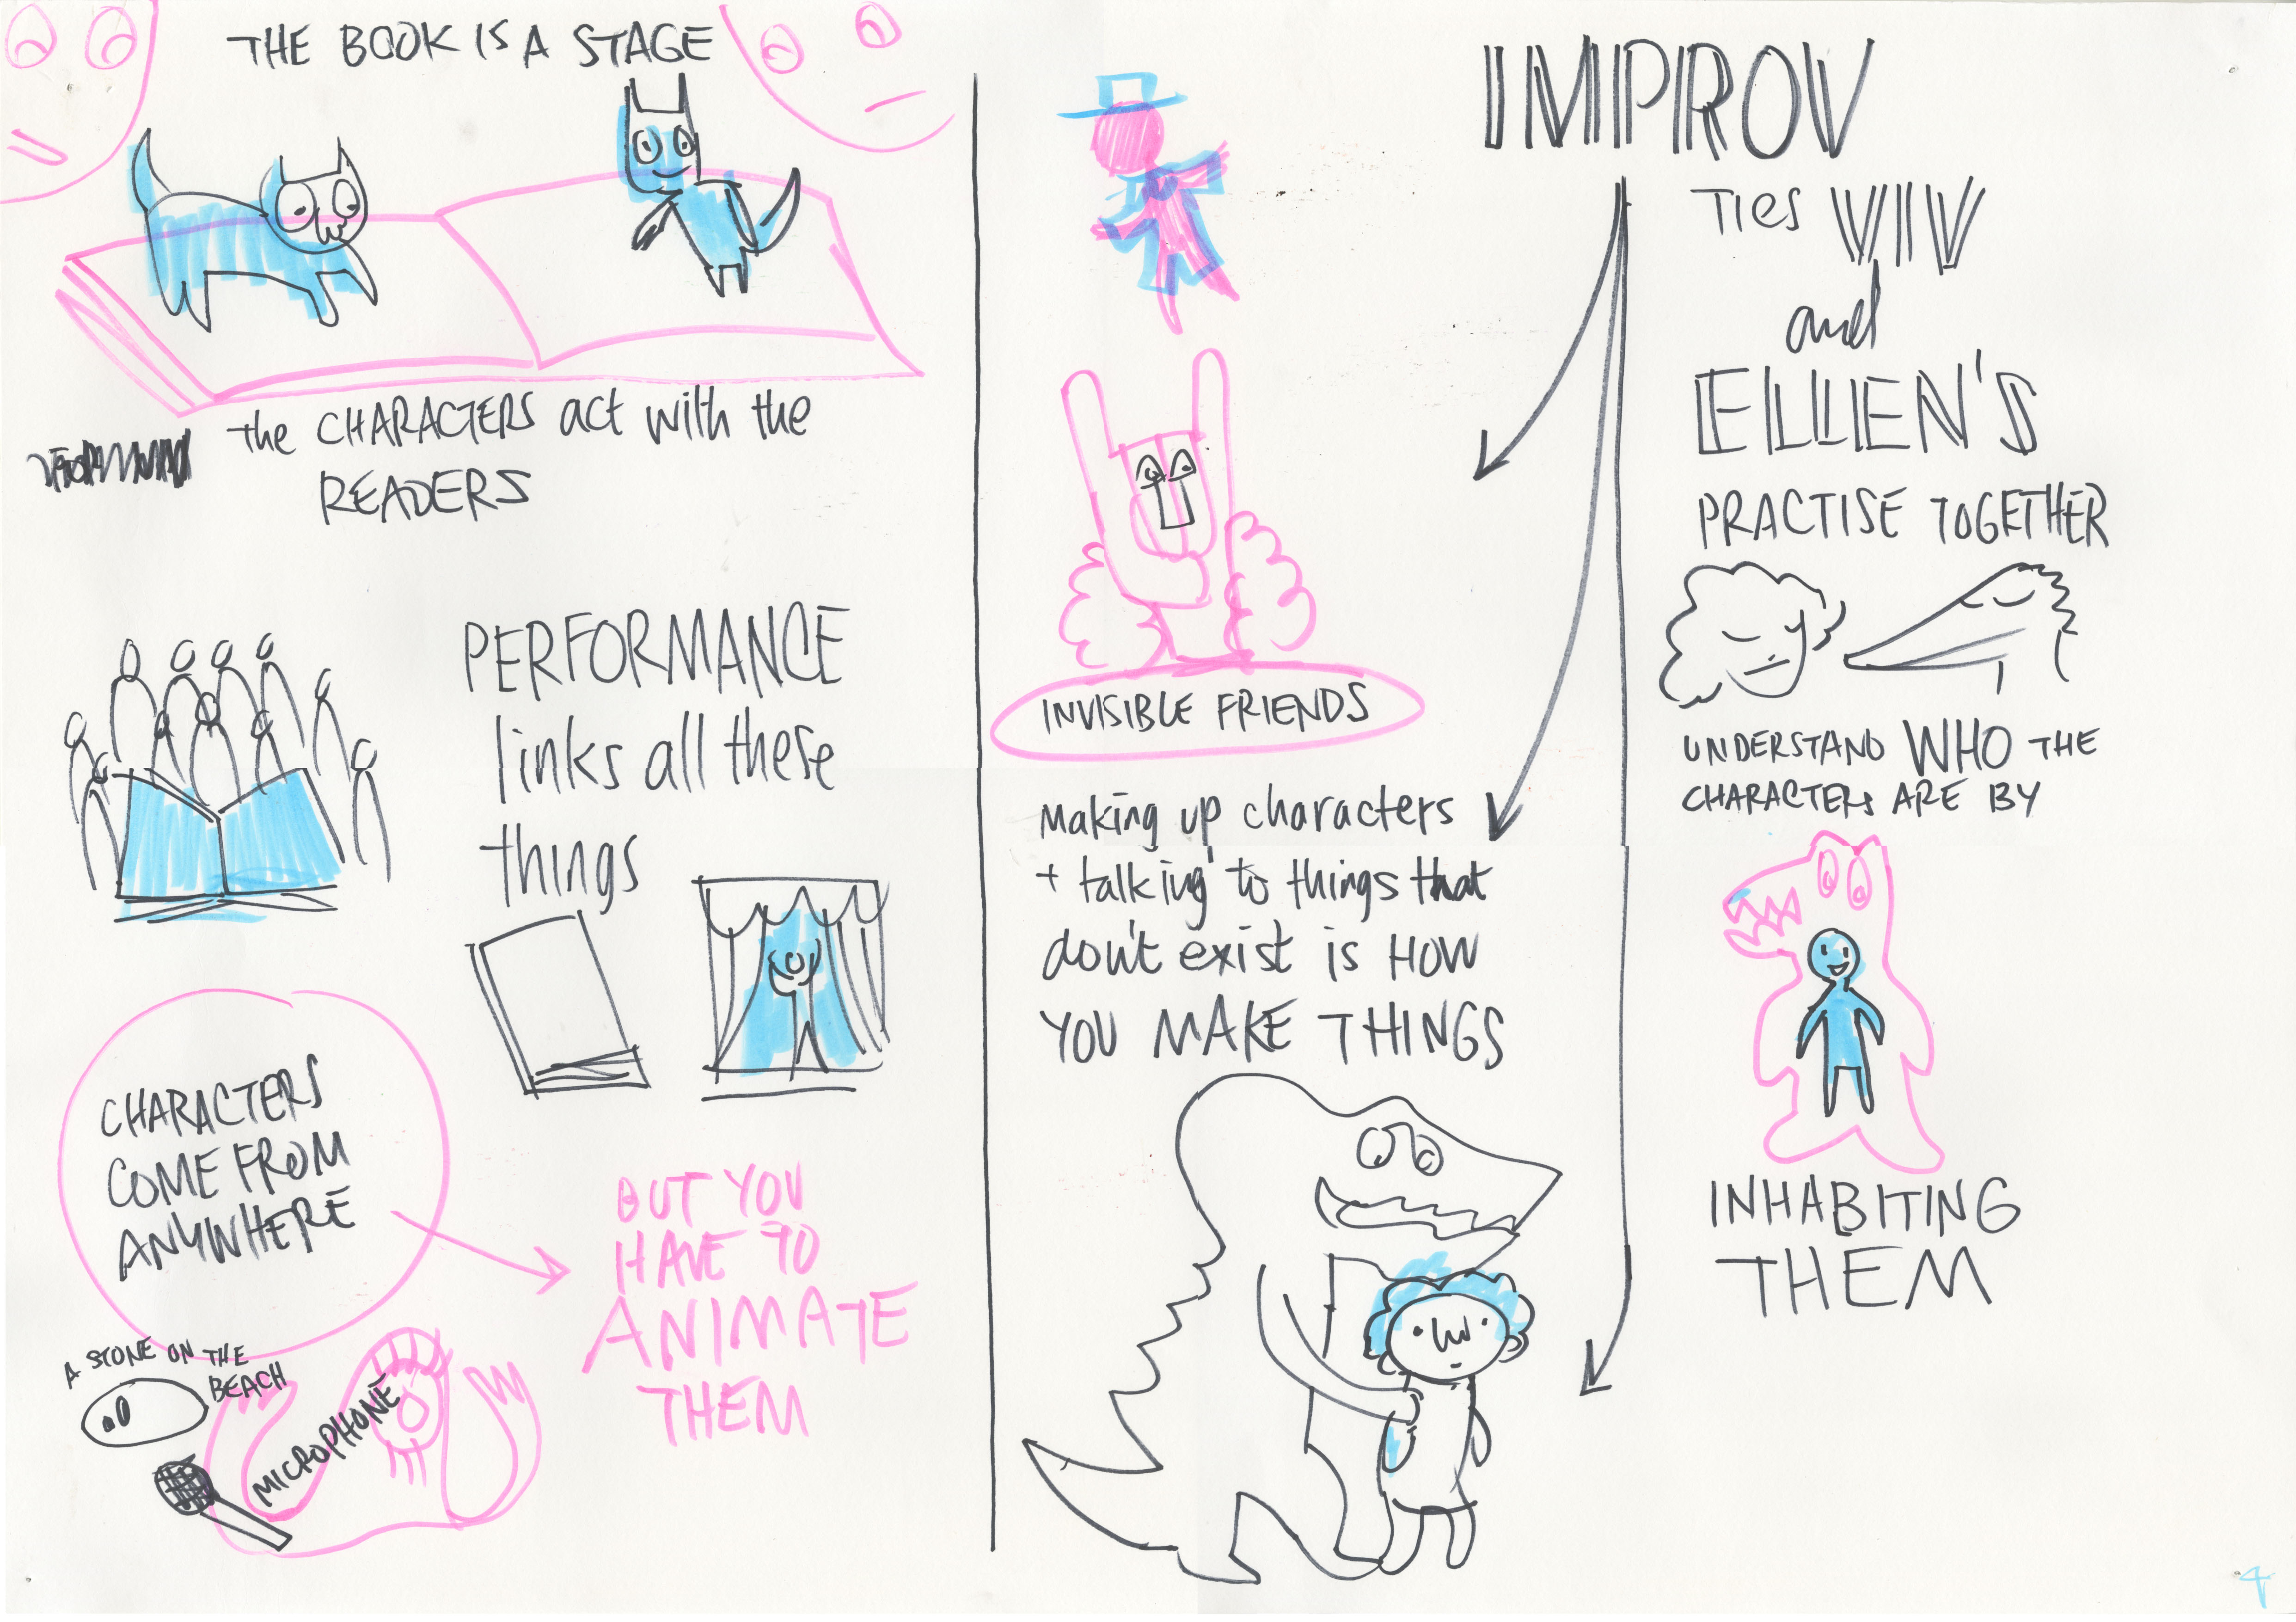 THE BOOK IS A STAGE
the CHARACTERS act with the
READERS
PERFORMANCE
links all these
things
CHARACTERS
COME FROM
ANYWHERE
BUT YOU
HAVE TO
ANIMATE
THEM
A STONE ON THE
BEACH
MICROPHONE
IMPROV
Ties VIV
and
ELLEN'S
PRACTISE TOGETHER
INVISIBLE FRIENDS
Making up characters
+ talking to things that
don't exist is HOW
YOU MAKE THINGS
UNDERSTAND WHO THE
CHARACTERS ARE BY
INHABITING
THEM
4